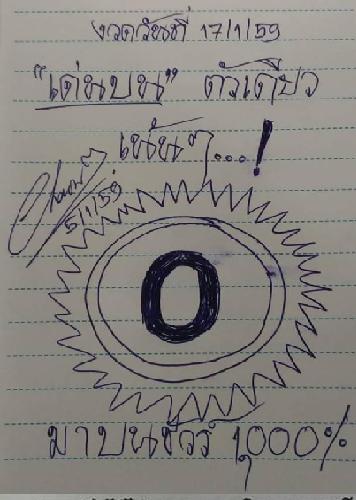 งวดวันที่ 17/1/59
"เด่นบน" ตัวเดียว
เน้นๆ...!
5/1/59
0
มาบนชัวร์ 1,000%